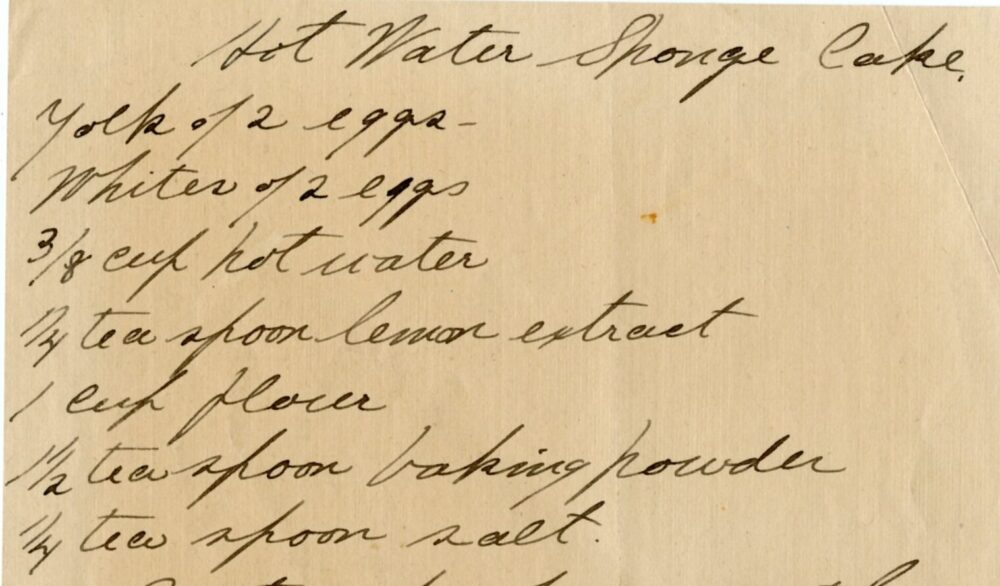 Hot Water Sponge Cake.
Yolk of 2 eggs-
Whites of 2 eggs
3/8 cup hot water
1/4 tea spoon lemon extract
1 cup flour
1 1/2 tea spoon baking powder
1/4 tea spoon salt.